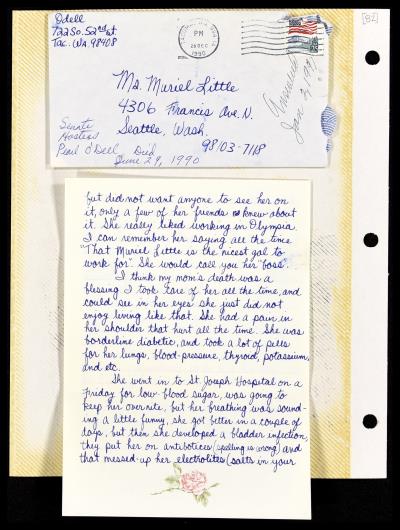 [82]
Odell
722 So. 52nd St.
Tac. WA. 98408
PM
26 DEC
1990
Ms. Muriel Little
4306 Francis Ave. N.
Seattle, Wash.
98103-7118
Senate
Hostess
Pearl O'Dell Died
June 29, 1990
Answered
Jan 2, 199
but did not want anyone to see her on
it, only a few of her friends knew about
it. She really liked working in Olympia.
I can remember her saying all the time
"That Muriel Little is the nicest gal to
work for". She would call you her "boss".
I think my mom's death was a
blessing I took care of her all the time, and
could see in her eyes she just did not
enjoy living like that. She had a pain in
her shoulder that hurt all the time. She was
borderline diabetic, and took a lot of pills
for her lungs, blood-pressure, thyroid, potassium,
and etc.
She went in to St. Joseph Hospital on a
Friday for low-blood sugar, was going to
keep her overnite, but her breathing was sound-
ing a little funny, she got better in a couple of
days, but then she developed a bladder infection,
they put her on antibotices (spelling is wrong) and
that messed-up her electrolites (salts in your